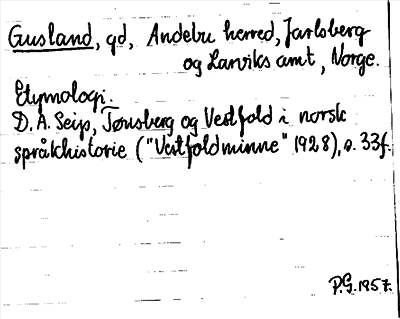 Gusland, gd, Andebu herred, Jarlsberg
og Larviks amt, Norge.
Etymologi.
D. A. Seip, Tønsberg og Vestfold i norsk
språkhistorie ("Vestfoldminne" 1928), s. 33f.
P.G. 1957.